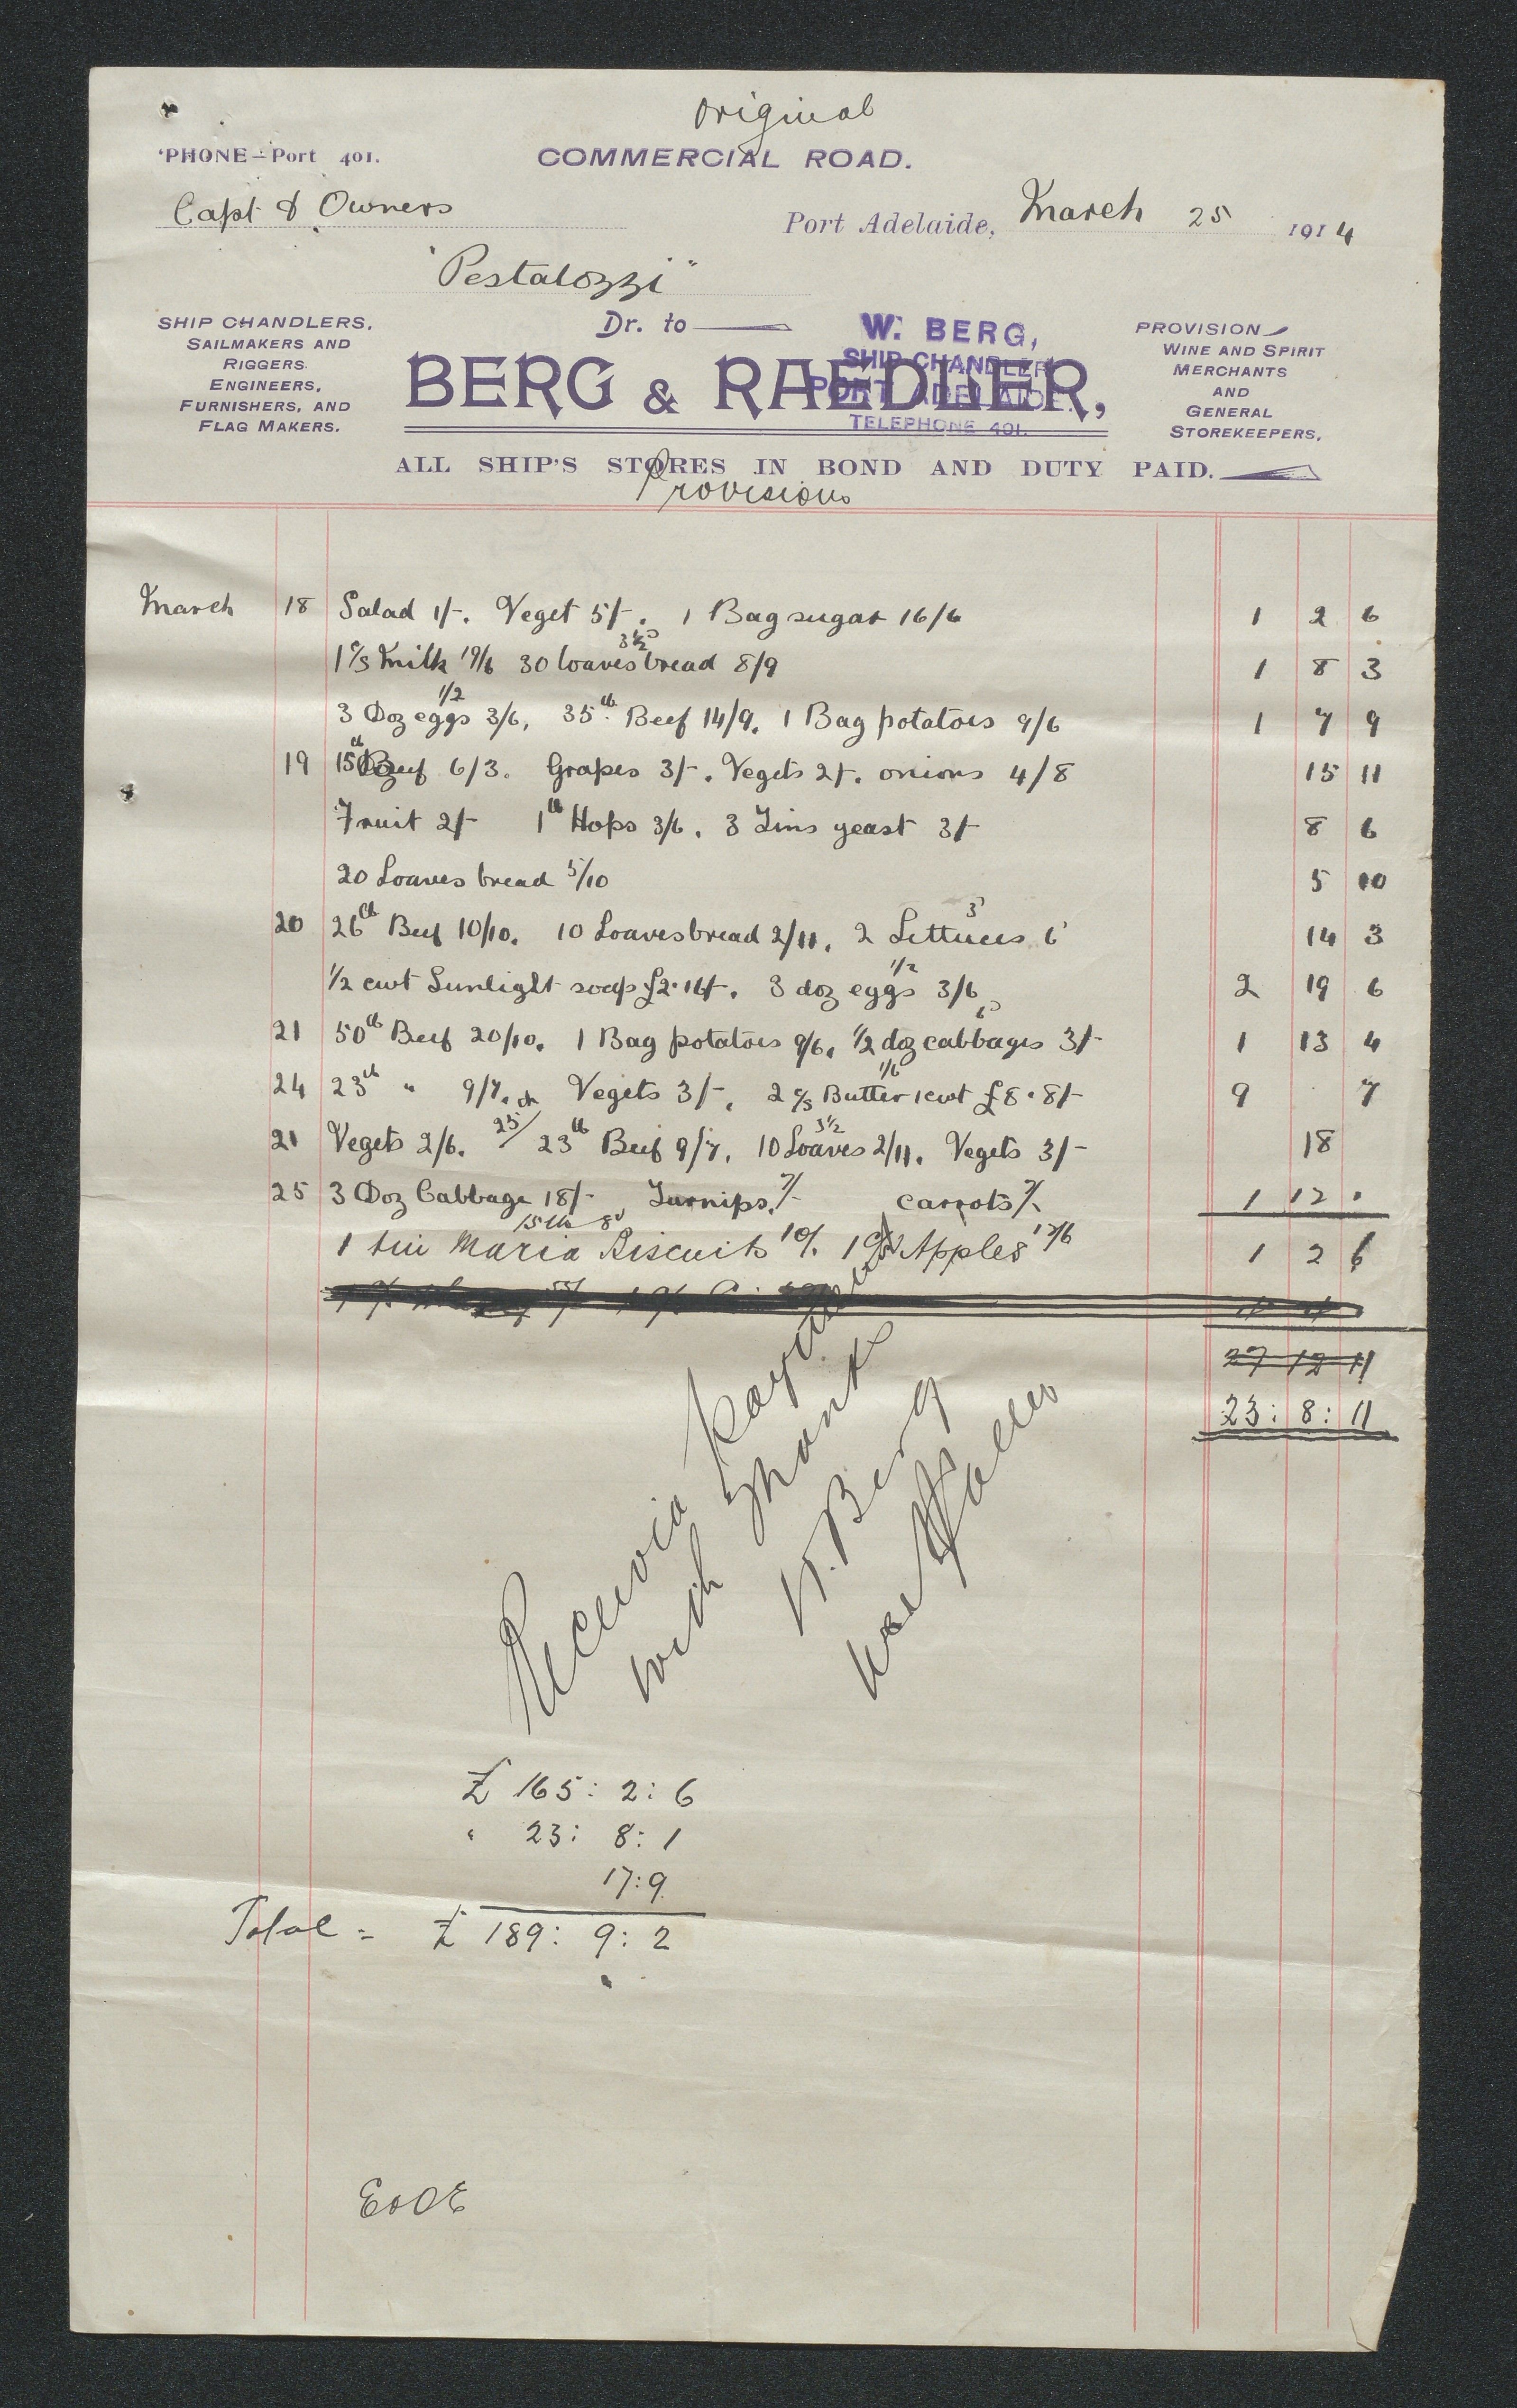 Original
'PHONE—Port 401.
COMMERCIAL ROAD.
Capt & Owners
Port Adelaide, March 25 1914
"Pestalozzi"
SHIP CHANDLERS,
SAILMAKERS AND
RIGGERS
ENGINEERS,
FURNISHERS, AND
FLAG MAKERS.
Dr. to
W. BERG,
SHIP CHANDLER
PORT ADELAIDE.
TELEPHONE 401.
BERG & RAEDLER,
PROVISION
WINE AND SPIRIT
MERCHANTS
AND
GENERAL
STOREKEEPERS,
ALL SHIP'S STORES IN BOND AND DUTY PAID.
Provisions
March 18 Salad 1/-. Veget 5/-. 1 Bag sugar 16/6 1 2 6
1 c/s Milk 19/6 30 loaves bread 3½ 8/9 1 8 3
3 Doz eggs 1/2 3/6, 35 lb Beef 14/9. 1 Bag potatoes 9/6 1 7 9
19 15 lb Beef 6/3. Grapes 3/-. Vegets 2/-. onions 4/8 15 11
Fruit 2/- 1 lb Hops 3/6. 3 Tins yeast 3/- 8 6
20 Loaves bread 5/10 5 10
20 26 lb Beef 10/10. 10 Loaves bread 2/11. 2 Lettuces 3 6 14 3
1/2 cwt Sunlight soap £2.16/-. 3 doz eggs 1/2 3/6 2 19 6
21 50 lb Beef 20/10. 1 Bag potatoes 9/6. 1/2 doz cabbages 6 3/- 1 13 4
24 23 lb " 9/7. Vegets 3/-. 2 c/s Butter 1 cwt 1/6 £8.8/- 9 7
21 Vegets 2/6. 25/ 23 lb Beef 9/7. 10 Loaves 3½ 2/11. Vegets 3/- 18
25 3 Doz Cabbage 18/- Turnips 7/- carrots 7/- 1 12 .
1 tin Maria Biscuits 15 lb 8d 10/. 1 c/s Apples 12/6 1 2 6
27 12 11
23: 8: 11
Received payment
with thanks
W. Berg
£ 165: 2: 6
" 23: 8: 1
17: 9
Total = £ 189: 9: 2
E&OE